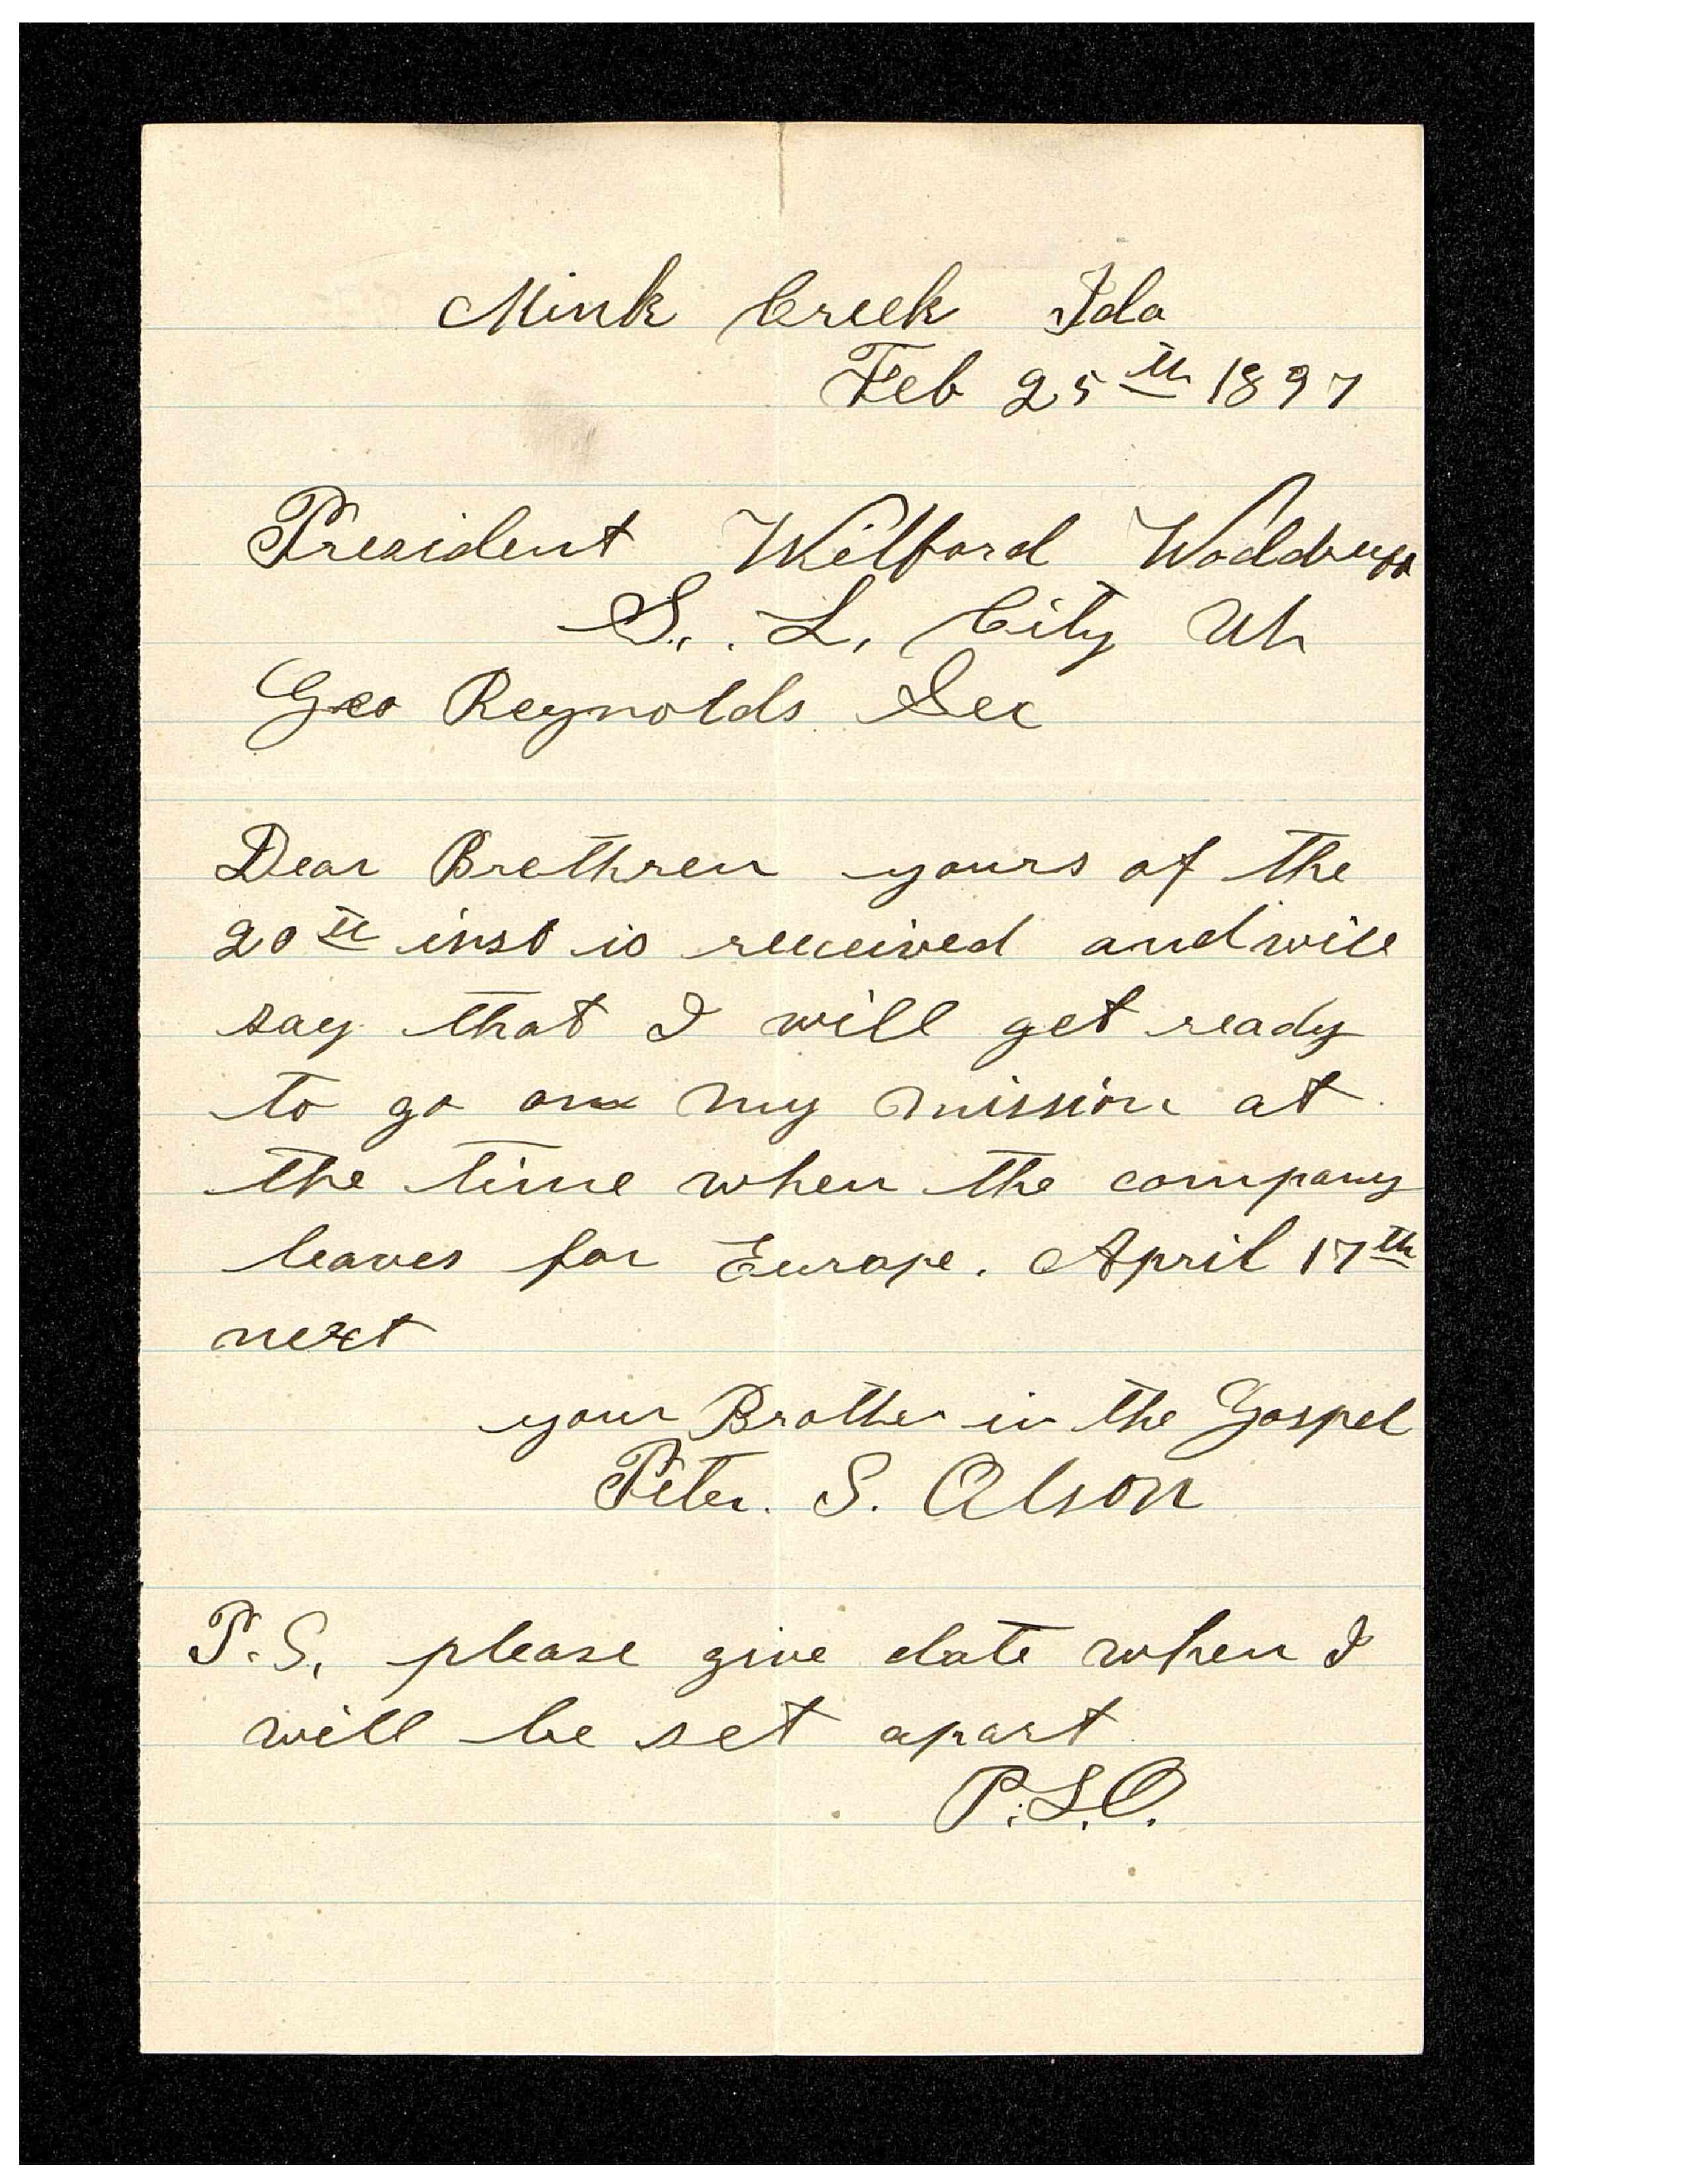 Mink Creek Ida
Feb 25th 1897
President Wilford Wooddruff
S. . L. City Ut
Geo Reynolds Sec
Dear Brethren yours of the
20th inst is received and will
say that I will get ready
to go on my mission at
the time when the company
leaves for Europe. April 17th
next
your Brother in the Gospel
Peter. S. Olson
P.S. please give date when I
will be set apart
P.S.O.